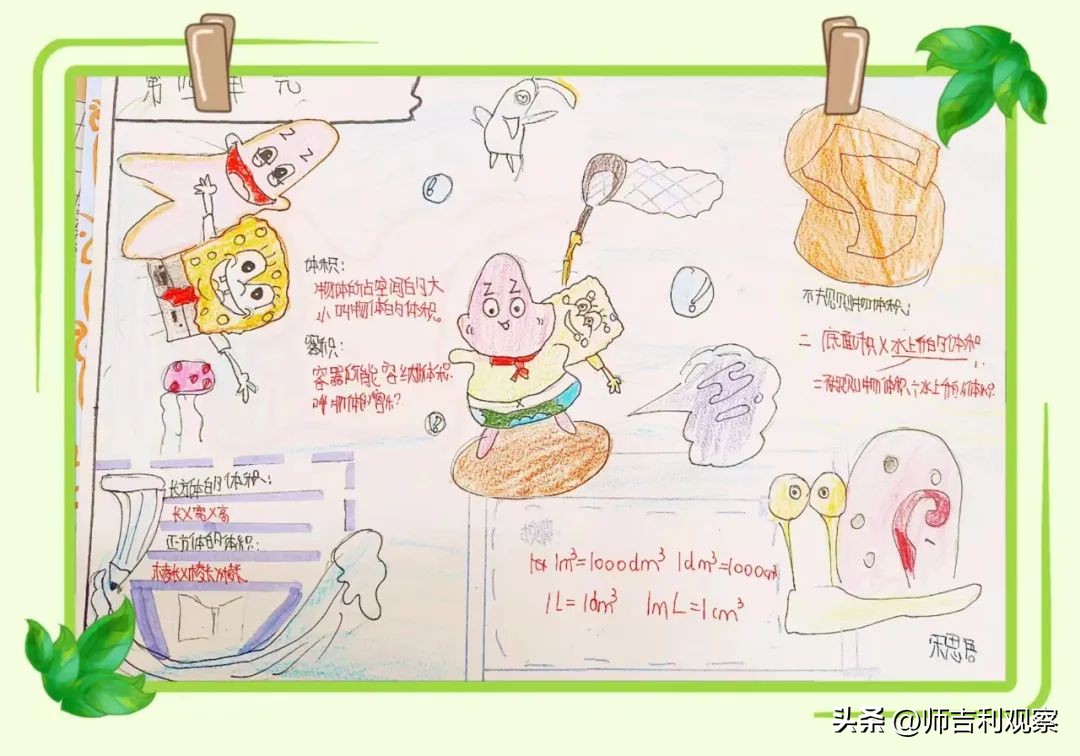 第四单元
体积:
物体所占空间的大
小叫物体的体积。
容积:
容器所能容纳物体积
叫物体的容积?
不规则物体积:
= 底面积×水上升的体积
长方体的体积:
长×宽×高
正方体的体积:
棱长×棱长×棱长
1m³=1000dm³ 1dm³=1000cm³
1L=1dm³ 1mL=1cm³
头条 @师吉利观察